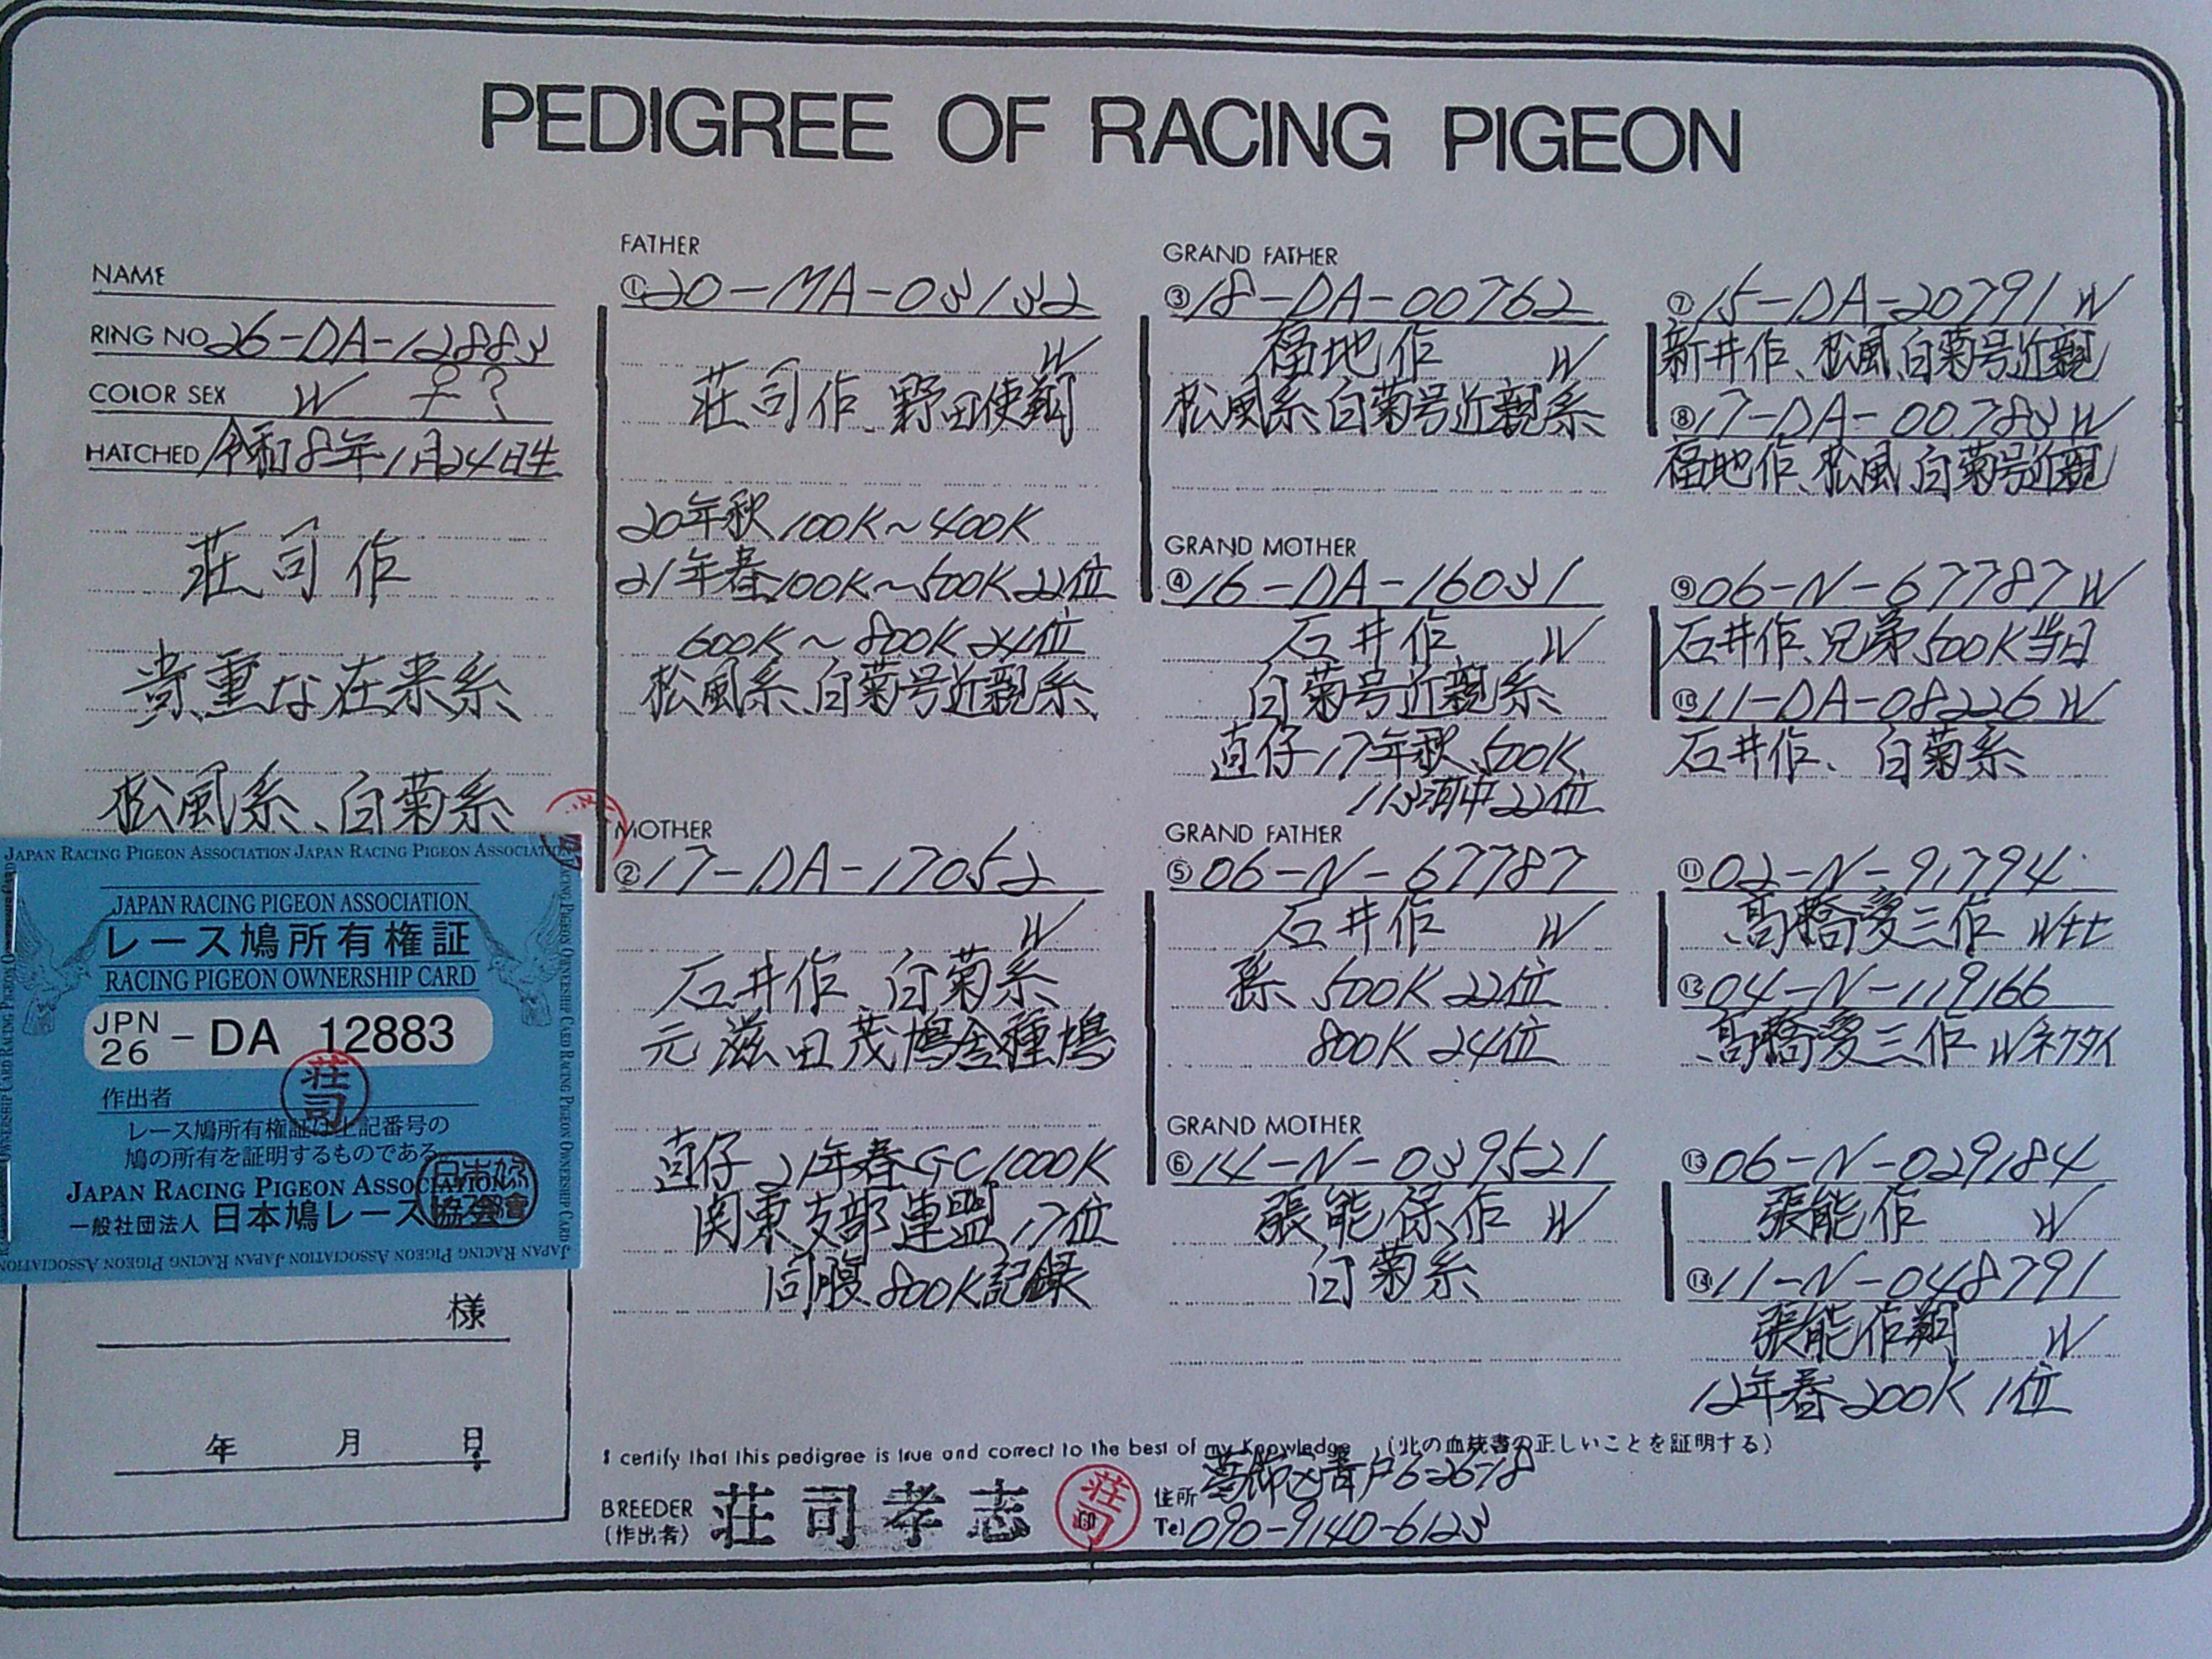 PEDIGREE OF RACING PIGEON
NAME
RING NO 26-DA-12883
COLOR SEX W ♀?
HATCHED 令和8年1月24日生
荘司作
貴重な在来系
松風系、白菊系
JAPAN RACING PIGEON ASSOCIATION JAPAN RACING PIGEON ASSOCIATION
JAPAN RACING PIGEON ASSOCIATION
レース鳩所有権証
RACING PIGEON OWNERSHIP CARD
JPN 26 - DA 12883
荘司
作出者
レース鳩所有権証は上記番号の
鳩の所有を証明するものである
JAPAN RACING PIGEON ASSOCIATION
一般社団法人 日本鳩レース協会
様
年 月 日
FATHER
①20-MA-03132
W
荘司作、野田使翔
20年秋100K~400K
21年春100K~500K22位
600K~800K24位
松風系、白菊号近親系
MOTHER
②17-DA-17052
W
石井作、白菊系
元滋田茂鳩舎種鳩
直仔21年春GC1000K
関東支部連盟17位
同腹800K記録
GRAND FATHER
③18-DA-00762
福地作 W
松風系白菊号近親系
GRAND MOTHER
④16-DA-16031
石井作 W
白菊号近親系
直仔17年秋500K
113羽中22位
GRAND FATHER
⑤06-N-67787
石井作 W
孫500K22位
800K24位
GRAND MOTHER
⑥14-N-039521
張能保作 W
白菊系
⑦15-DA-20791 W
新井作、松風白菊号近親
⑧17-DA-00783 W
福地作、松風白菊号近親
⑨06-N-67787 W
石井作、兄弟500K当日
⑩11-DA-08226 W
石井作、白菊系
⑪02-N-91794
髙橋愛三作 Wtt
⑫04-N-119166
髙橋愛三作 Wネクタイ
⑬06-N-029184
張能作 W
⑭11-N-048791
張能作翔 W
12年春200K1位
I certify that this pedigree is true and correct to the best of my Knowledge (此の血統書の正しいことを証明する)
BREEDER
(作出者) 荘司孝志 荘司
住所 葛飾区青戸6-26-18
Tel 090-9140-6123